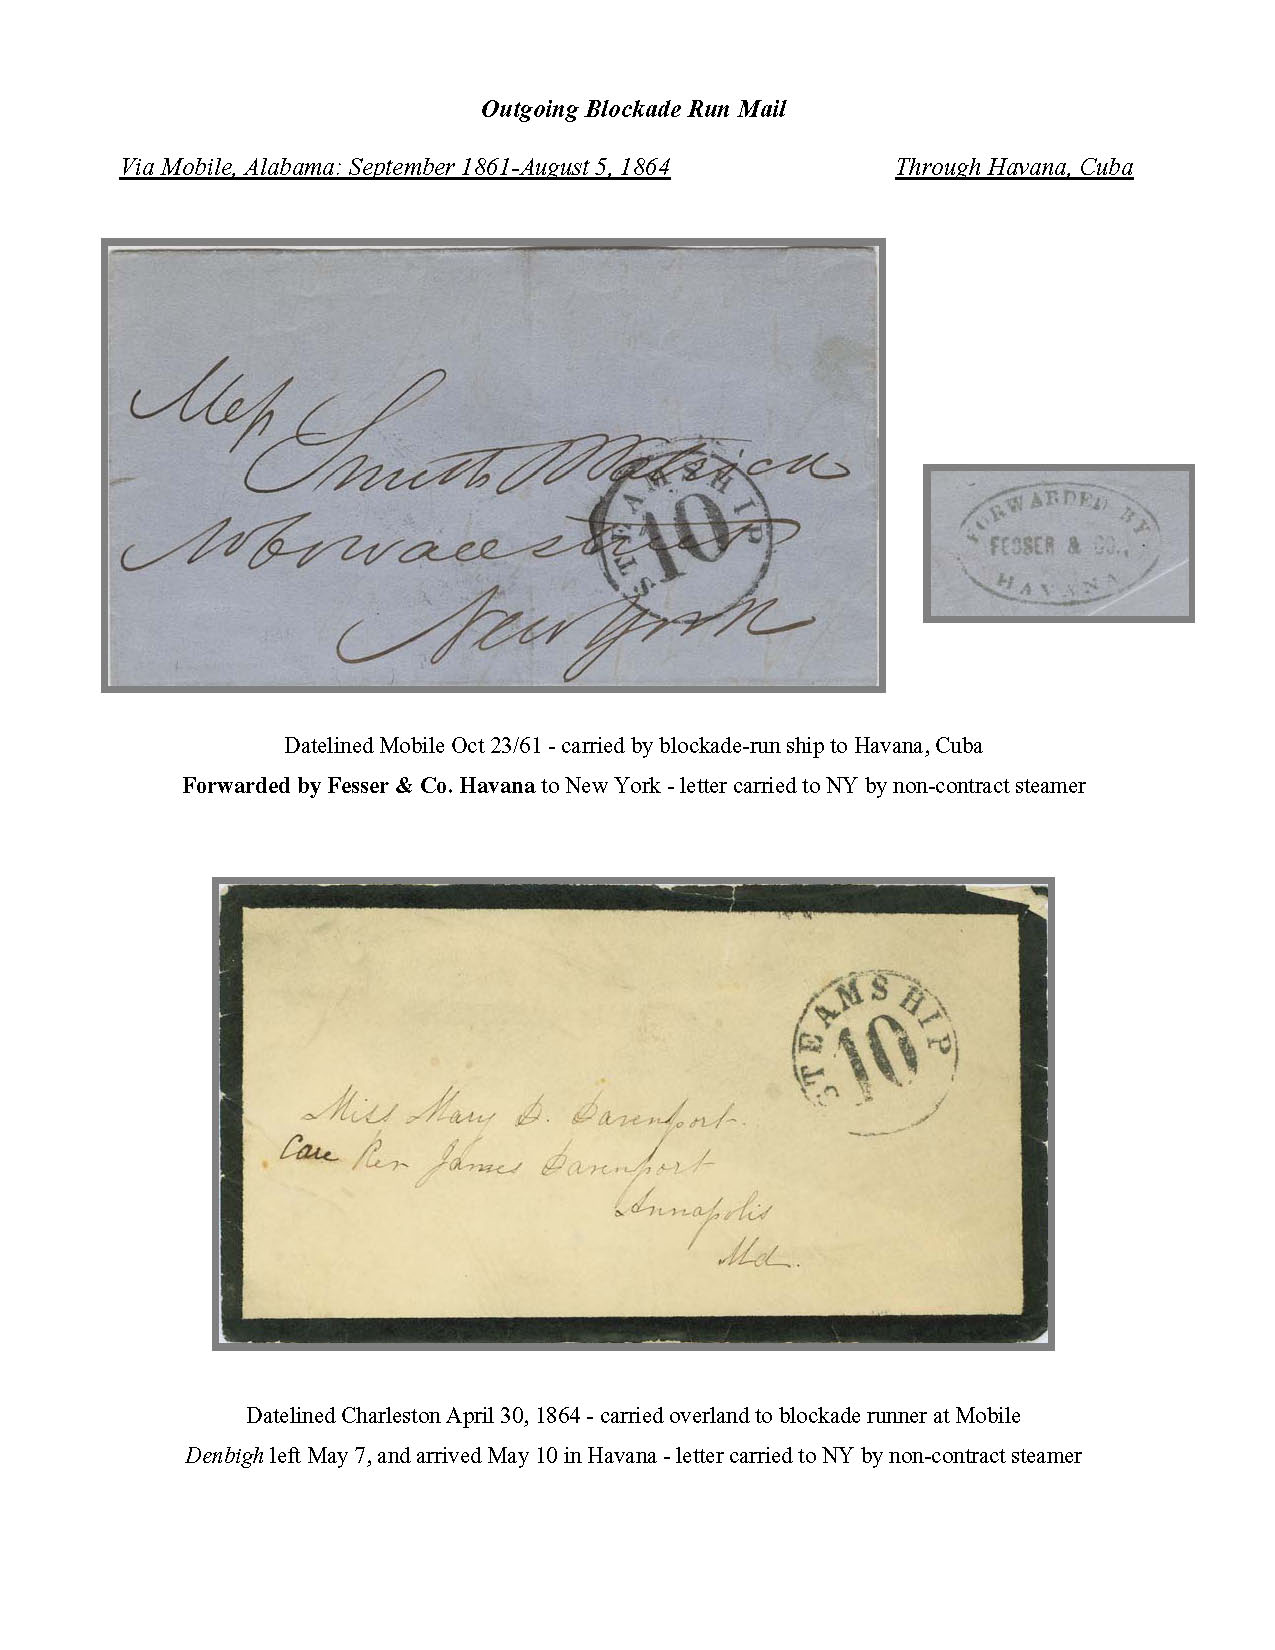 Outgoing Blockade Run Mail
Via Mobile, Alabama: September 1861-August 5, 1864 Through Havana, Cuba
Mess
Smith
STEAMSHIP
10
New York
FORWARDED BY
FESSER & CO.,
HAVANA
Datelined Mobile Oct 23/61 - carried by blockade-run ship to Havana, Cuba
Forwarded by Fesser & Co. Havana to New York - letter carried to NY by non-contract steamer
STEAMSHIP
10
Miss Mary D. Davenport.
Care Rev James Davenport
Annapolis
Md.
Datelined Charleston April 30, 1864 - carried overland to blockade runner at Mobile
Denbigh left May 7, and arrived May 10 in Havana - letter carried to NY by non-contract steamer